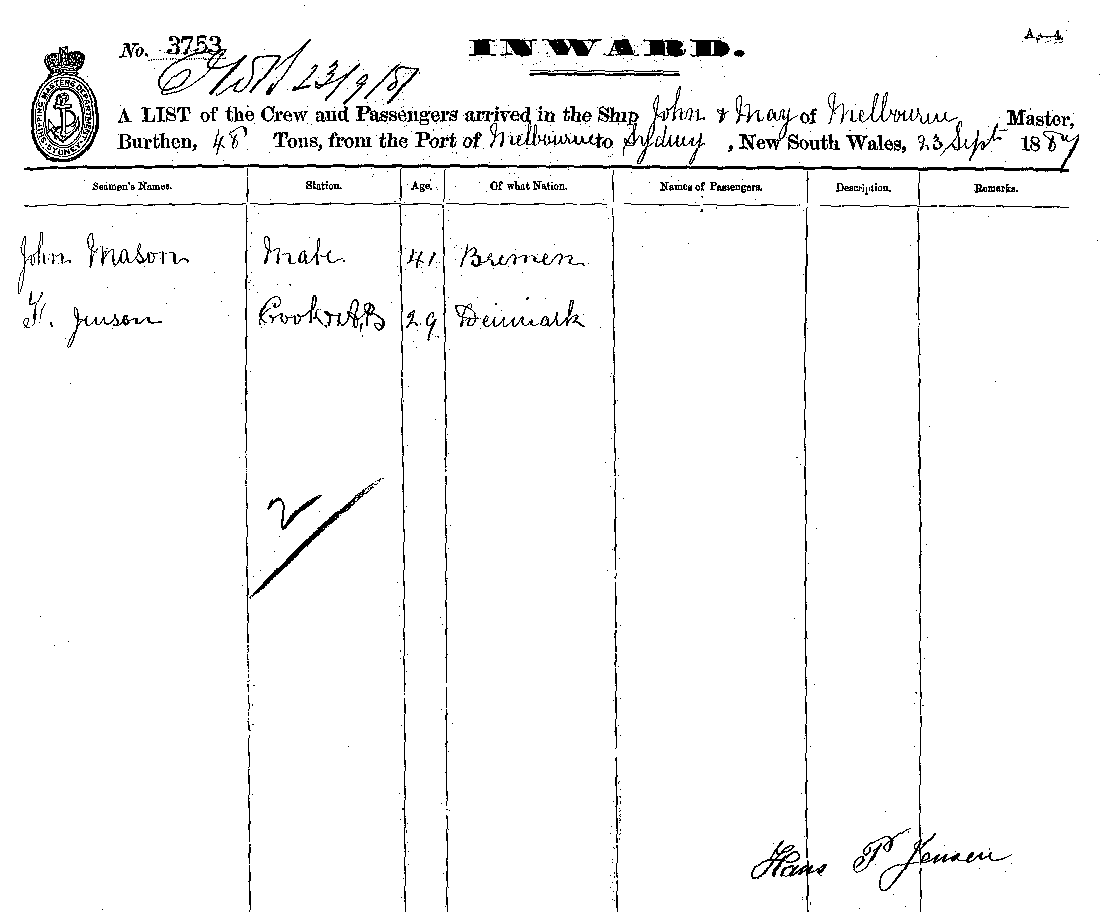 No. 3753 INWARD.
23/9/87
A LIST of the Crew and Passengers arrived in the Ship John & May of Melbourne Master,
Burthen, 48 Tons, from the Port of Melbourne to Sydney, New South Wales, 23 Sept 1887
Seamen's Names. Station. Age. Of what Nation. Names of Passengers. Description. Remarks.
John Mason Mate 41 Bremen
Jenson Cook & A,B 29 Denmark
2
Hans P Jensen
SHIPPING MASTERS DEPARTMENT SYDNEY